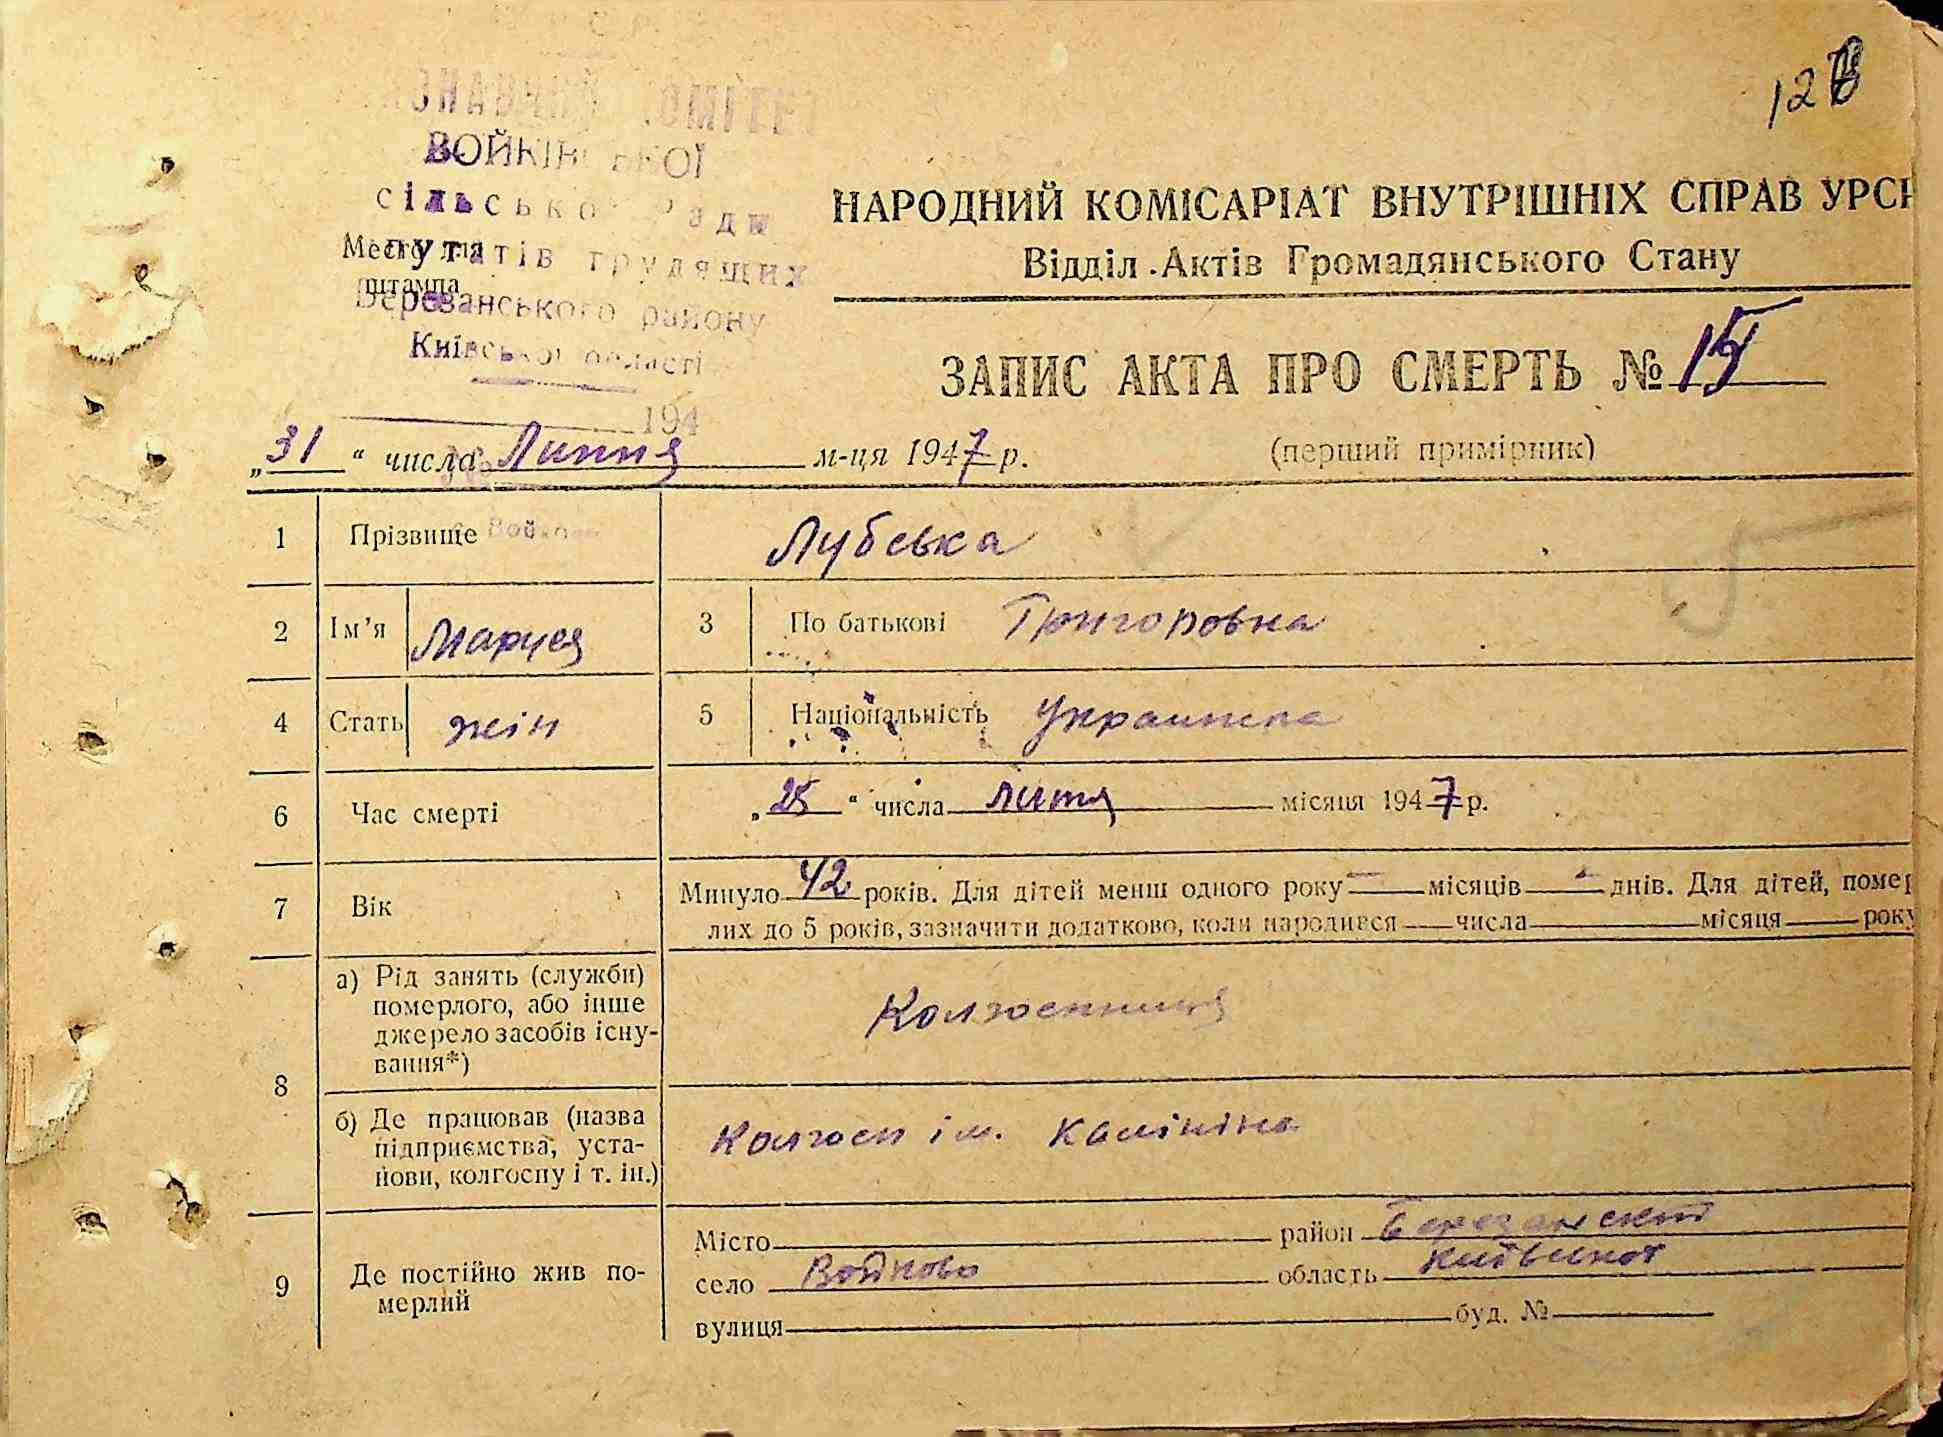 128
ВИКОНАВЧИЙ КОМІТЕТ
ВОЙКІВСЬКОЇ
сільської Ради
депутатів трудящих
Березанського району
Київської області
Место для
штампа
194
НАРОДНИЙ КОМІСАРІАТ ВНУТРІШНІХ СПРАВ УРСР
Відділ Актів Громадянського Стану
ЗАПИС АКТА ПРО СМЕРТЬ № 15
„31“ числа Липня м-ця 1947 р. (перший примірник)
1 Прізвище Лубська
2 Ім’я Маруся 3 По батькові Григоровна
4 Стать жін 5 Національність Украинка
6 Час смерті „25“ числа липня місяця 1947 р.
7 Вік Минуло 42 років. Для дітей менш одного року — місяців — днів. Для дітей, помер
лих до 5 років, зазначити додатково, коли народився числа місяця року
8 а) Рід занять (служби)
померлого, або інше
джерело засобів існу-
вання*)
Колгоспниця
б) Де працював (назва
підприємства, уста-
нови, колгоспу і т. ін.)
Колгосп ім. Калініна
9 Де постійно жив по-
мерлий
Місто район Березанский
село Войково область Київської
вулиця буд. №